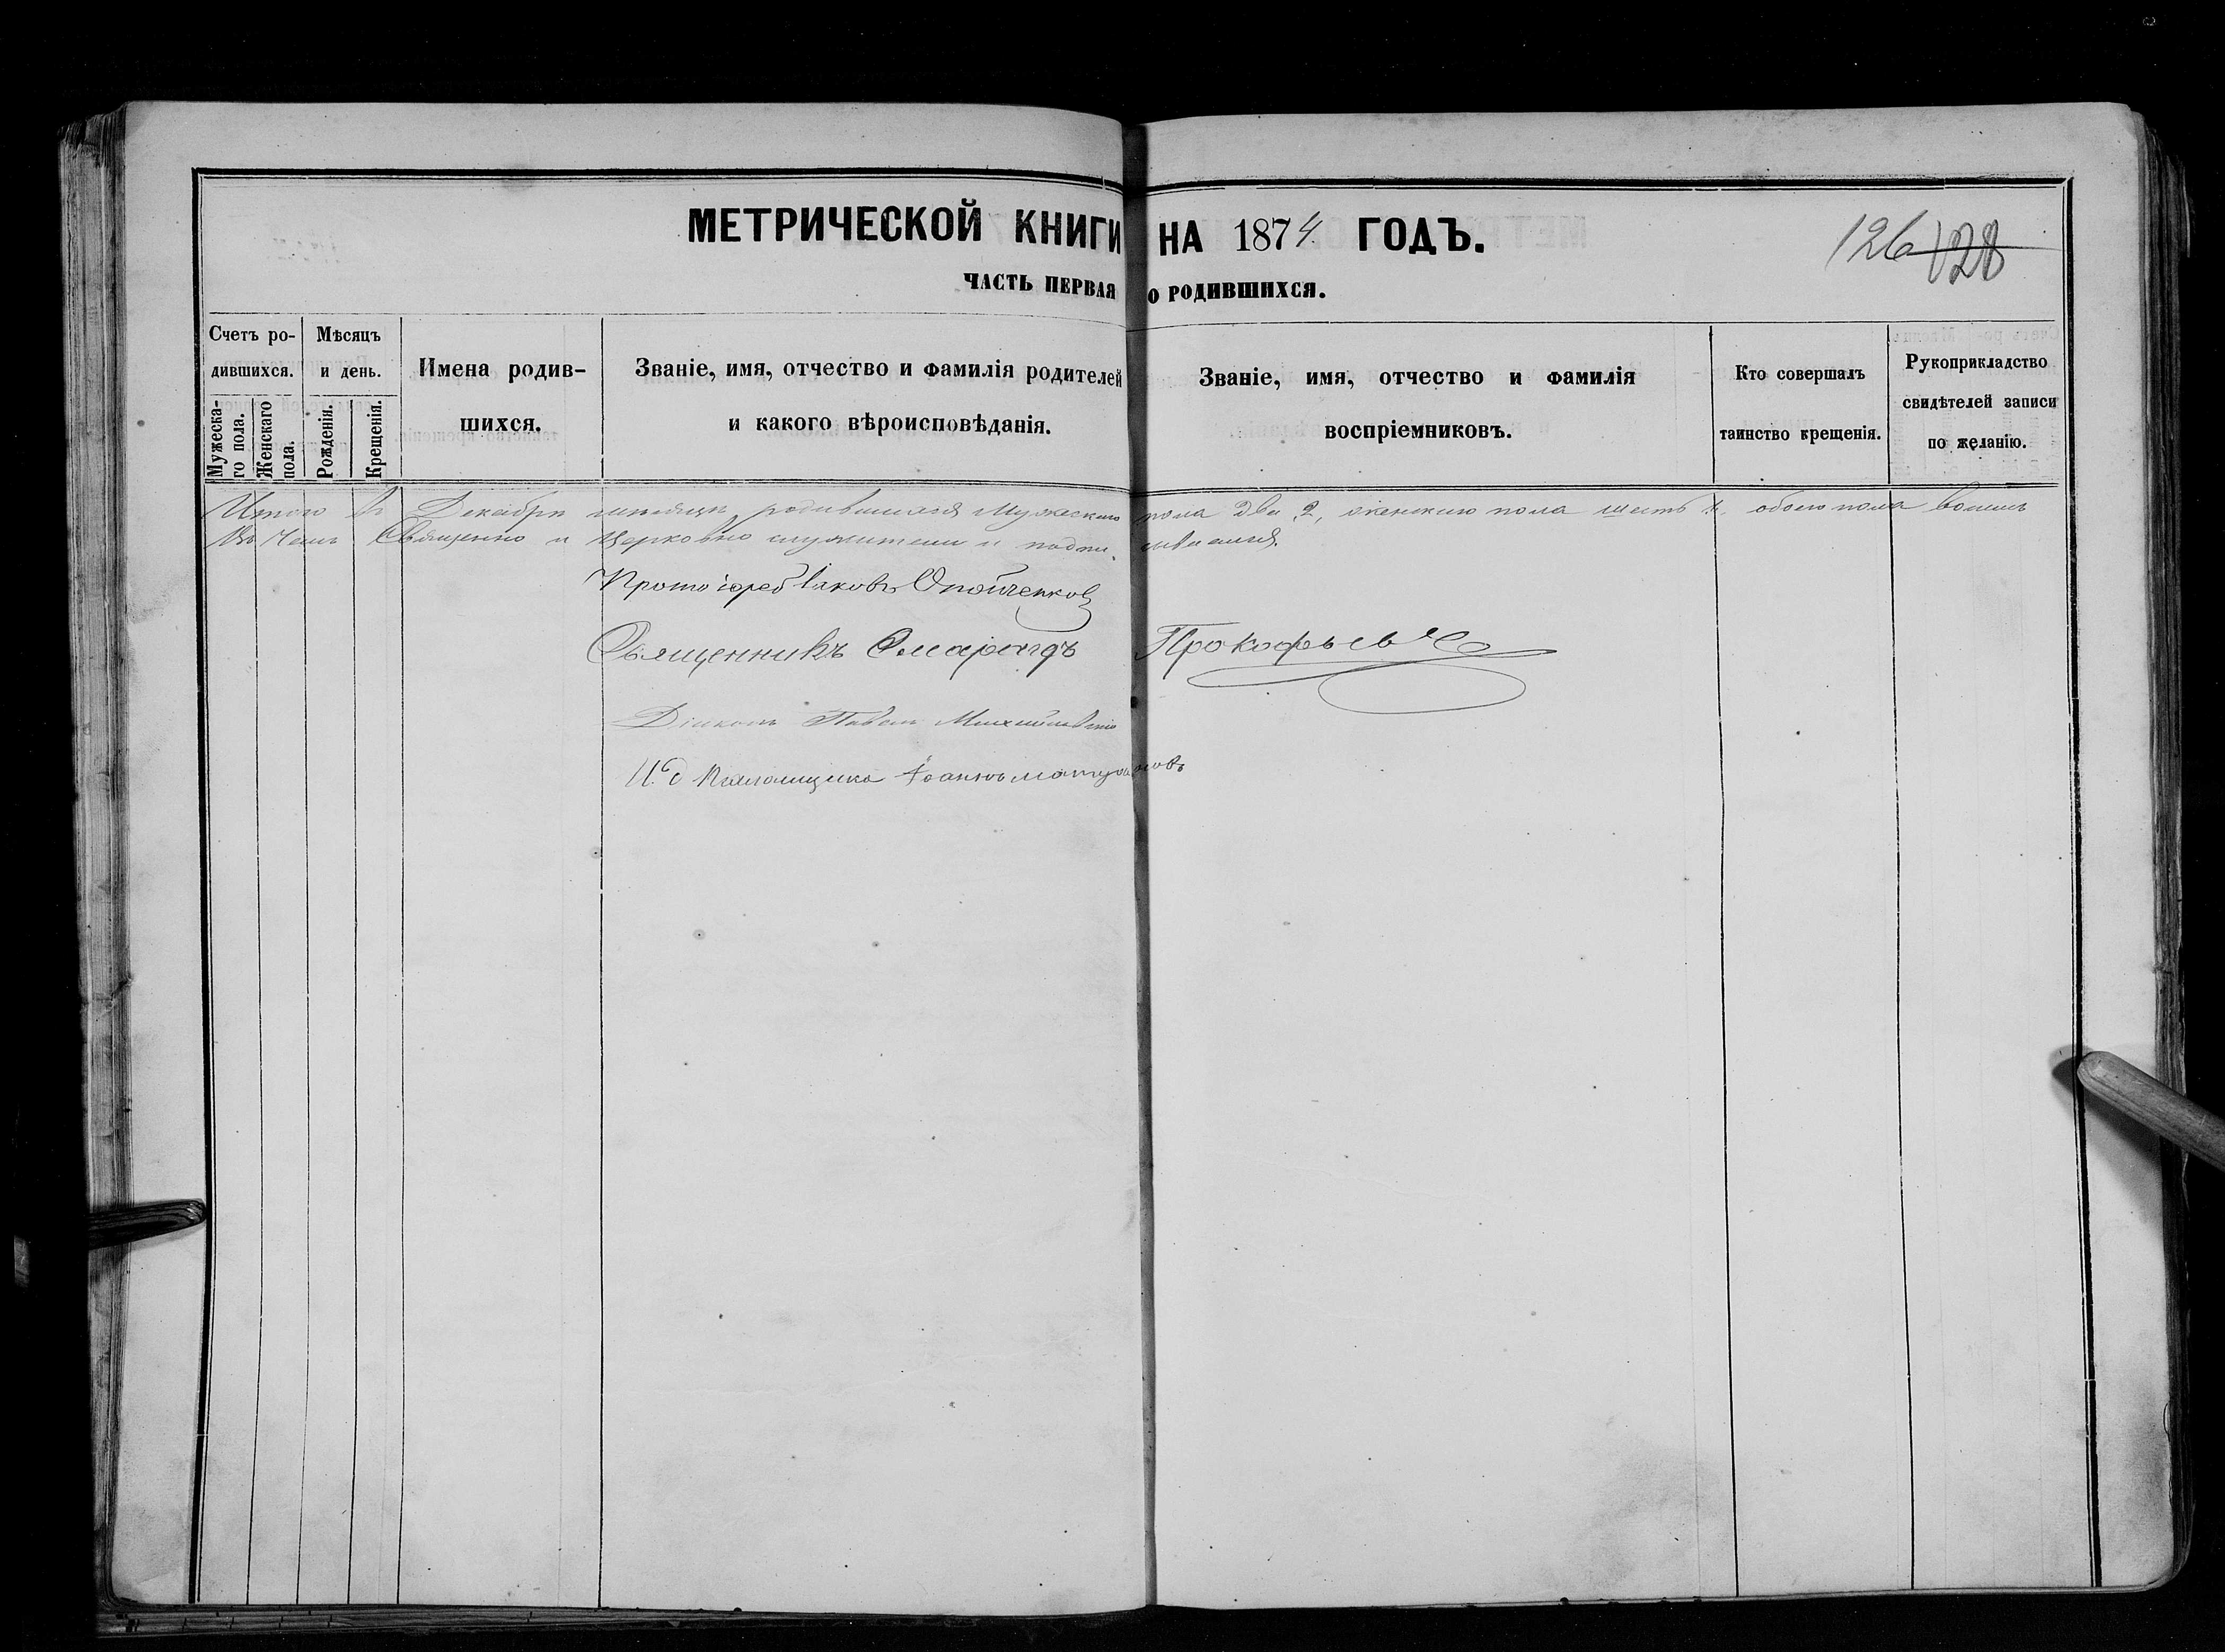 МЕТРИЧЕСКОЙ КНИГИ НА 1874 ГОДЪ.
126 128
ЧАСТЬ ПЕРВАЯ О РОДИВШИХСЯ.
Счетъ родившихся.
Мужескаго пола.
Женскаго пола.
Мѣсяцъ и день.
Рожденія.
Крещенія.
Имена родив-
шихся.
Званіе, имя, отчество и фамилія родителей
и какого вѣроисповѣданія.
Званіе, имя, отчество и фамилія
воспріемниковъ.
Кто совершалъ
таинство крещенія.
Рукоприкладство
свидѣтелей записи
по желанію.
Итого въ Декабрѣ мѣсяцѣ родившихся Мужескаго пола два 2, женскаго пола шесть обоего пола восемь
Въ чемъ Священно и Церковно служители и подписываемся.
Протоіерей Іаковъ
Священникъ Смарагдъ Прокофьевъ
Діаконъ Павелъ
И. д. Псаломщика Іоаннъ